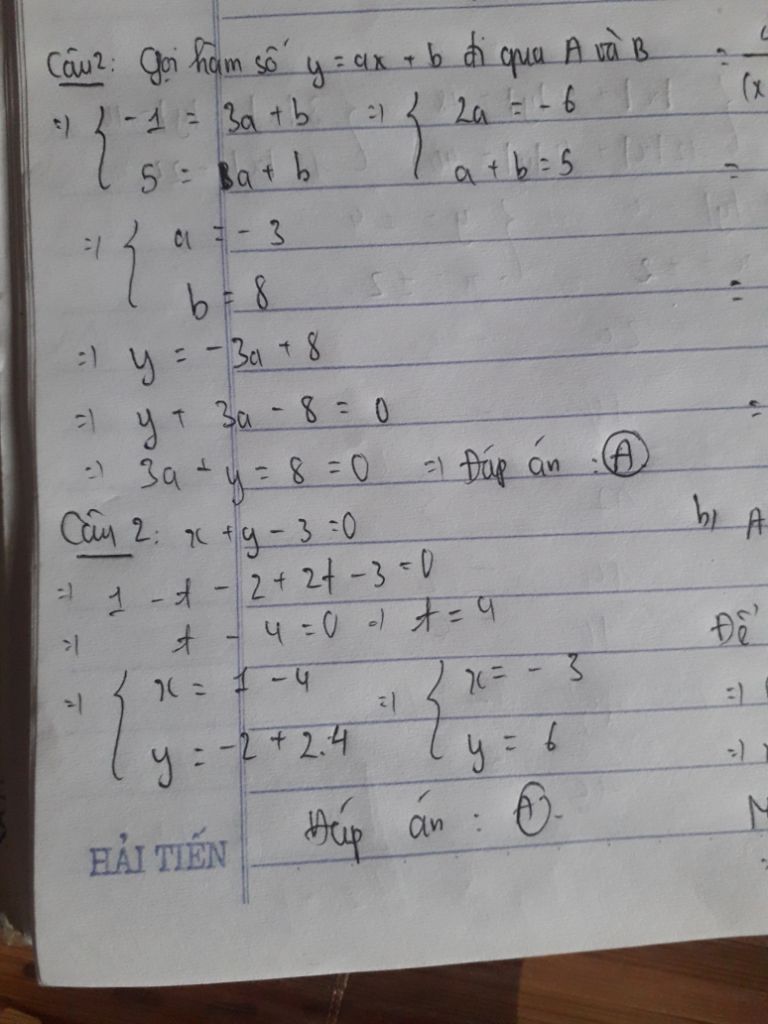 Câu 2: Gọi hàm số y = ax + b đi qua A và B =
=) { -1 = 3a + b =) { 2a = -6 (x
5 = a + b a + b = 5 =
=) { a = -3
b = 8 =
=) y = -3a + 8
=) y + 3a - 8 = 0 =
=) 3a + y = 8 = 0 =) Đáp án : A
Câu 2: x + y - 3 = 0 b) A
=) 1 - t - 2 + 2t - 3 = 0
=) t - 4 = 0 =) t = 4 Để
=) { x = 1 - 4 =) { x = -3 =)
y = -2 + 2.4 y = 6 =)
Đáp án : A. M
HẢI TIẾN